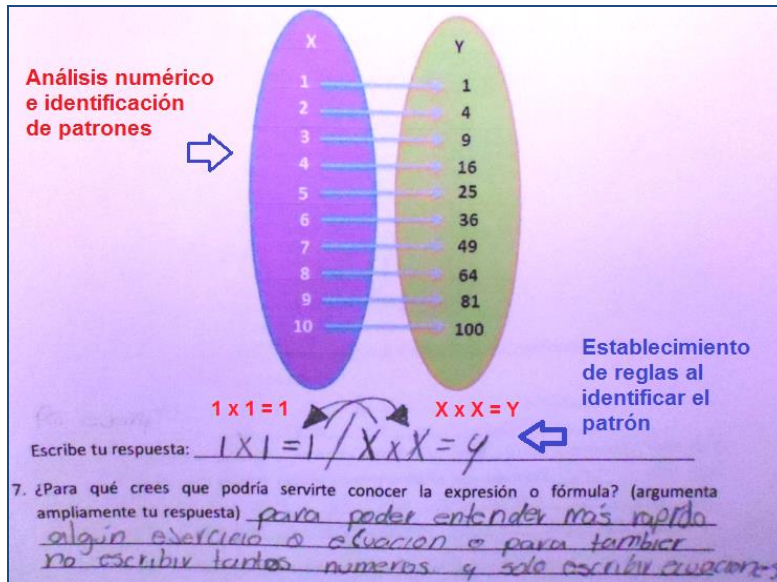 X
Y
Análisis numérico
e identificación
de patrones
1 1
2 4
3 9
4 16
5 25
6 36
7 49
8 64
9 81
10 100
Establecimiento
de reglas al
identificar el
patrón
1 x 1 = 1
X x X = Y
Escribe tu respuesta: 1X1=1 / X x X = y
7. ¿Para qué crees que podría servirte conocer la expresión o fórmula? (argumenta
ampliamente tu respuesta) para poder entender más rapido
algún ejercicio o ecuacion o para tambier
no escribir tantos numeros y solo escribir ecuaciones